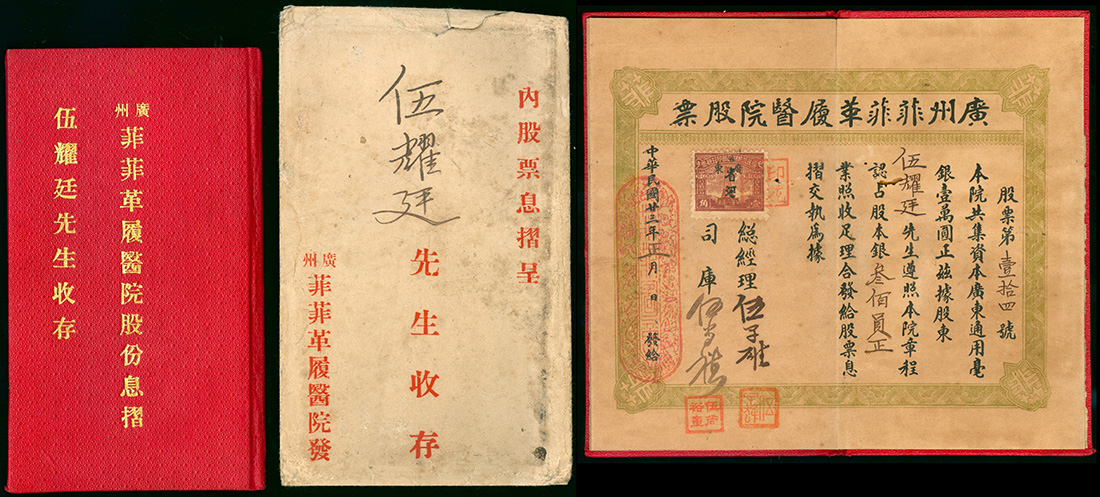 廣州
菲菲革履醫院股份息摺
伍耀廷先生收存
內股票息摺呈
伍耀廷先生收存
廣州
菲菲革履醫院發
廣州菲菲革履醫院股票
股票第壹拾四號
本院共集資本廣東通用毫
銀壹萬圓正茲據股東
伍耀廷先生遵照本院章程
認占股本銀叁佰員正
業照收足理合發給股票息
摺交執為據
總經理伍子雄
司庫
中華民國廿三年正月 日 發給